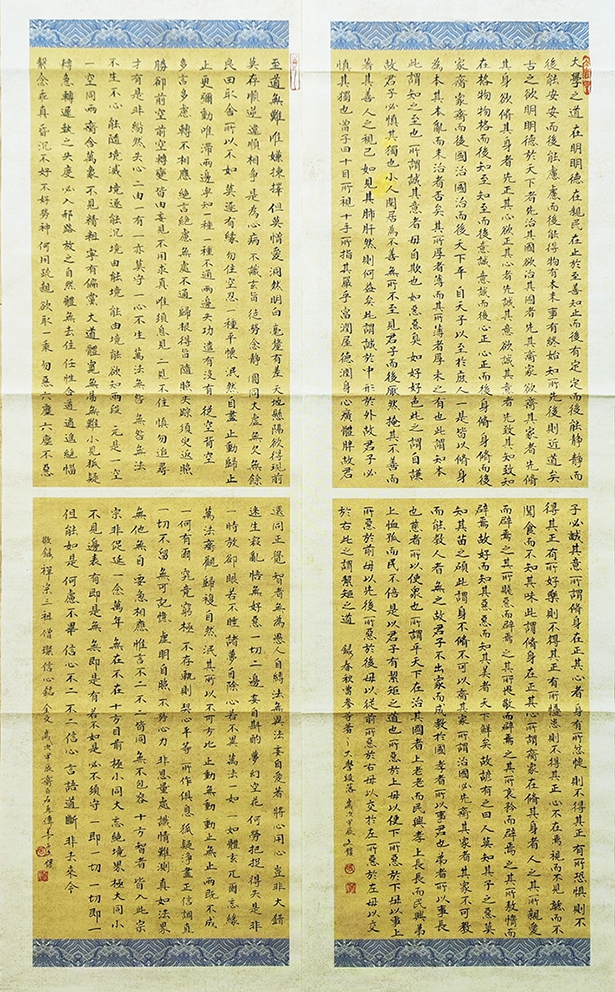 大學之道 在明明德 在親民 在止於至善 知止而後有定 定而後能靜 靜而
後能安 安而後能慮 慮而後能得 物有本末 事有終始 知所先後 則近道矣
古之欲明明德於天下者先治其國欲治其國者先齊其家欲齊其家者先脩
其身欲脩其身者先正其心欲正其心者先誠其意欲誠其意者先致其知致知
在格物物格而後知至知至而後意誠意誠而後心正心正而後身脩身脩而後
家齊家齊而後國治國治而後天下平自天子以至於庶人一是皆以脩身
為本其本亂而末治者否矣其所厚者薄而其所薄者厚未之有也此謂知本
此謂知之至也所謂誠其意者毋自欺也如惡惡臭如好好色此之謂自謙
故君子必慎其獨也小人閒居為不善無所不至見君子而後厭然揜其不善而
著其善人之視己如見其肺肝然則何益矣此謂誠於中形於外故君子必
慎其獨也曾子曰十目所視十手所指其嚴乎富潤屋德潤身心廣體胖故君
子必誠其意所謂脩身在正其心者身有所忿懥則不得其正有所恐懼則不
得其正有所好樂則不得其正有所憂患則不得其正心不在焉視而不見聽而不
聞食而不知其味此謂脩身在正其心所謂齊家在脩其身者人之其所親愛
而辟焉之其所賤惡而辟焉之其所畏敬而辟焉之其所哀矜而辟焉之其所敖惰而
辟焉故好而知其惡惡而知其美者天下鮮矣故諺有之曰人莫知其子之惡莫
知其苗之碩此謂身不脩不可以齊其家所謂治國必先齊其家者其家不可教
而能教人者無之故君子不出家而成教於國孝者所以事君也弟者所以事長
也慈者所以使衆也所謂平天下在治其國者上老老而民興孝上長長而民興弟
上恤孤而民不倍是以君子有絜矩之道也所惡於上毋以使下所惡於下毋以事上
所惡於前毋以先後所惡於後毋以從前所惡於右毋以交於左所惡於左毋以交
於右此之謂絜矩之道 錄春秋曾參等著之大學段落 歲次甲辰
至道無難 唯嫌揀擇 但莫憎愛 洞然明白 毫釐有差 天地懸隔 欲得現前
莫存順逆 違順相爭 是為心病 不識玄旨 徒勞念靜 圓同太虛 無欠無餘
良由取舍 所以不如 莫逐有緣 勿住空忍 一種平懷 泯然自盡 止動歸止
止更彌動 唯滯兩邊 寧知一種 一種不通 兩邊失功 遣有沒有 從空背空
多言多慮 轉不相應 絕言絕慮 無處不通 歸根得旨 隨照失宗 須臾返照
勝卻前空 前空轉變 皆由妄見 不用求真 唯須息見 二見不住 慎勿追尋
才有是非 紛然失心 二由一有 一亦莫守 一心不生 萬法無咎 無咎無法
不生不心 能隨境滅 境逐能沉 境由能境 能由境能 欲知兩段 元是一空
一空同兩 齊含萬象 不見精粗 寧有偏黨 大道體寬 無易無難 小見狐疑
轉急轉遲 執之失度 必入邪路 放之自然 體無去住 任性合道 逍遙絕惱
繫念乖真 昏沉不好 不好勞神 何用疏親 欲取一乘 勿惡六塵 六塵不惡
還同正覺 智者無為 愚人自縛 法無異法 妄自愛著 將心用心 豈非大錯
迷生寂亂 悟無好惡 一切二邊 妄自斟酌 夢幻空花 何勞把捉 得失是非
一時放卻 眼若不睡 諸夢自除 心若不異 萬法一如 一如體玄 兀爾忘緣
萬法齊觀 歸復自然 泯其所以 不可方比 止動無動 動止無止 兩既不成
一何有爾 究竟窮極 不存軌則 契心平等 所作俱息 狐疑淨盡 正信調直
一切不留 無可記憶 虛明自照 不勞心力 非思量處 識情難測 真如法界
無他無自 要急相應 惟言不二 不二皆同 無不包容 十方智者 皆入此宗
宗非促延 一念萬年 無在不在 十方目前 極小同大 忘絕境界 極大同小
不見邊表 有即是無 無即是有 若不如是 必不須守 一即一切 一切即一
但能如是 何慮不畢 信心不二 不二信心 言語道斷 非去來今
敬錄 禪宗三祖 僧璨信心銘 全文 歲次甲辰